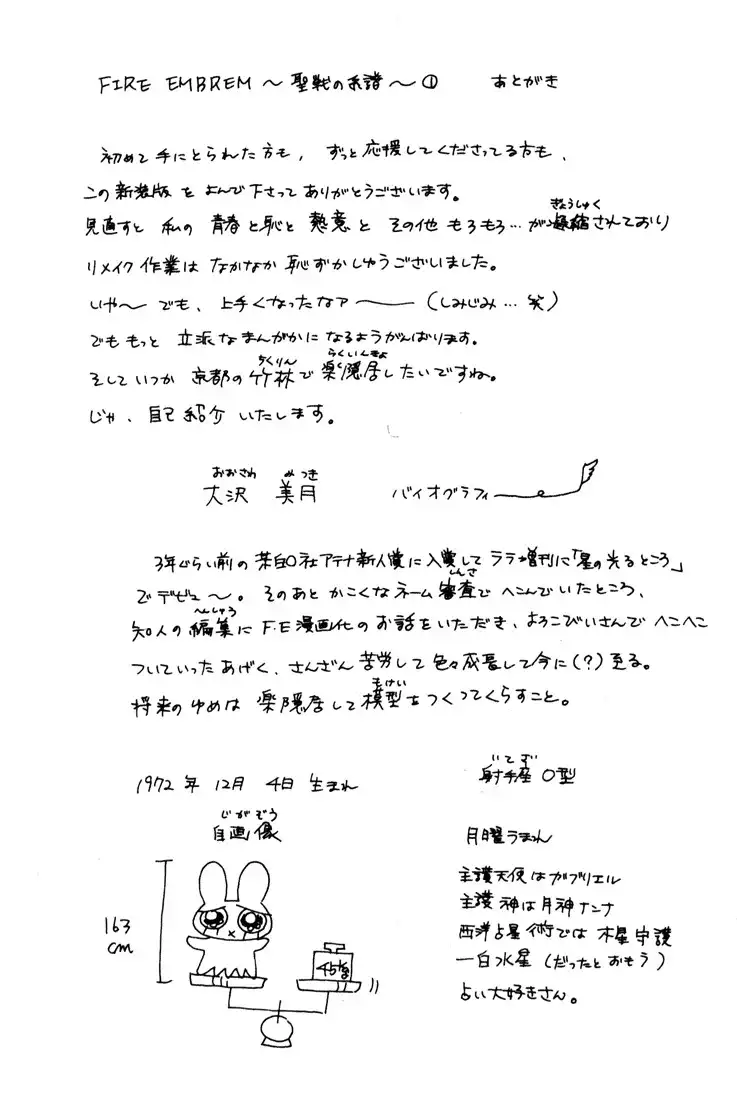 FIRE EMBREM 〜聖戦の系譜〜① あとがき
初めて手にとられた方も、ずっと応援してくださってる方も、
この新装版をよんで下さってありがとうございます。
きょうしゅく
見直すと私の青春と恥と熱意とその他もろもろ…が凝縮されており
リメイク作業はなかなか恥ずかしゅうございました。
いや〜でも、上手くなったなァ――(しみじみ…笑)
でももっと立派なまんがかになるようがんばります。
ちくりん らくいんきょ
そしていつか京都の竹林で楽隠居したいですね。
じゃ、自己紹介いたします。
おおさわ みつき
大沢 美月 バイオグラフィー
3年くらい前の某白○社アテナ新人賞に入賞してララ増刊に「星の光るところ」
しんさ
でデビュ〜。そのあとかこくなネーム審査でへこんでいたところ、
へんしゅう
知人の編集にF.E漫画化のお話をいただき、よろこびいさんでへこへこ
ついていったあげく、さんざん苦労して色々成長して今に(?)至る。
もけい
将来のゆめは楽隠居して模型をつくってくらすこと。
1972年12月4日生まれ
いてざ
射手座 O型
じがぞう
自画像
月曜うまれ
主護天使はガブリエル
主護神は月神ナンナ
西洋占星術では木星守護
一白水星(だったとおもう)
占い大好きさん。
163
cm